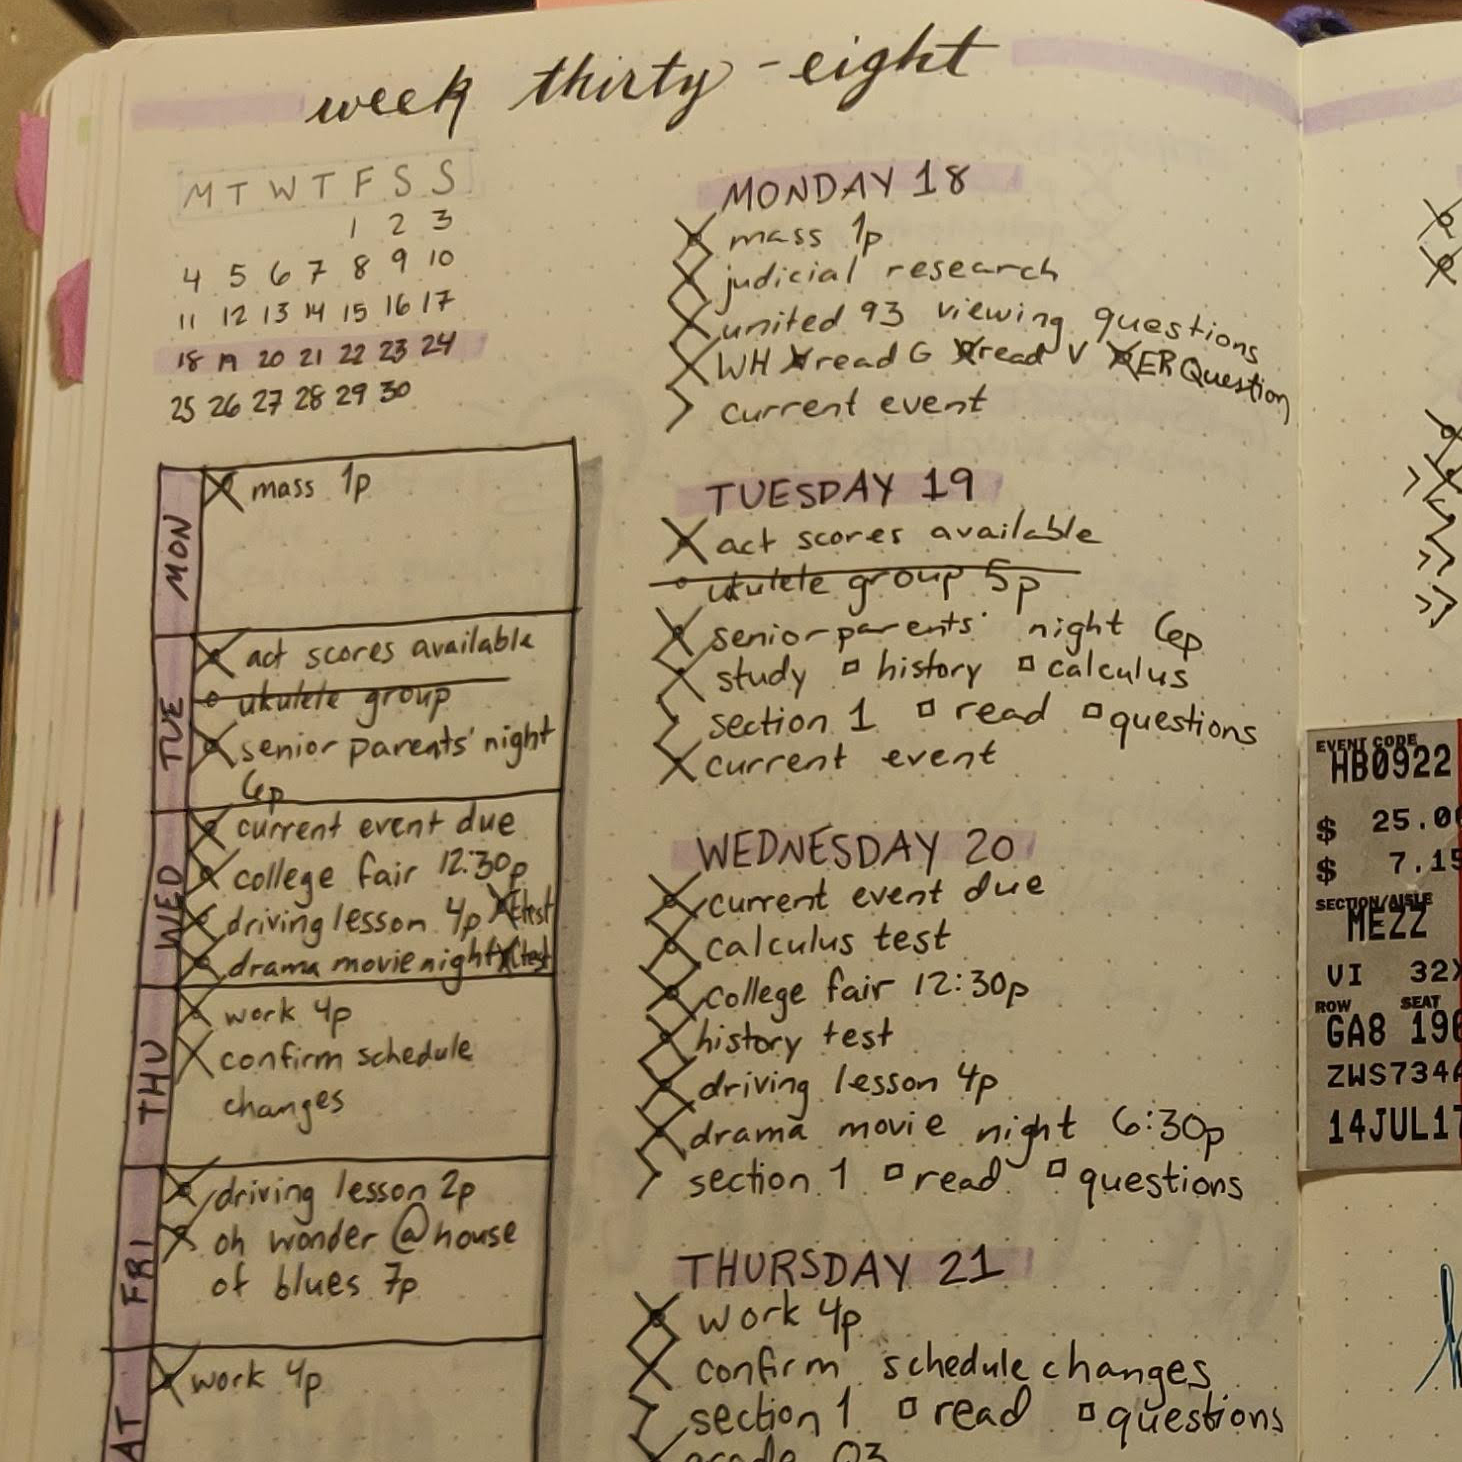 week thirty-eight
M T W T F S S
1 2 3
4 5 6 7 8 9 10
11 12 13 14 15 16 17
18 19 20 21 22 23 24
25 26 27 28 29 30
MON
mass 1p
TUE
act scores available
ukulele group
senior parents' night
6p
WED
current event due
college fair 12:30p
driving lesson 4p Ctest
drama movie night Ctest
THU
work 4p
confirm schedule
changes
FRI
driving lesson 2p
oh wonder @ house
of blues 7p
AT
work 4p
MONDAY 18
mass 1p
judicial research
united 93 viewing questions
WH read G read V ER Question
current event
TUESDAY 19
act scores available
ukulele group 5p
senior parents' night 6p
study history calculus
section 1 read questions
current event
WEDNESDAY 20
current event due
calculus test
college fair 12:30p
history test
driving lesson 4p
drama movie night 6:30p
section 1 read questions
THURSDAY 21
work 4p
confirm schedule changes
section 1 read questions
grade Q3
EVENT CODE
HB0922
$ 25.00
$ 7.15
SECTION/AISLE
MEZZ
VI 32X
ROW SEAT
GA8 196
ZWS734A
14JUL17